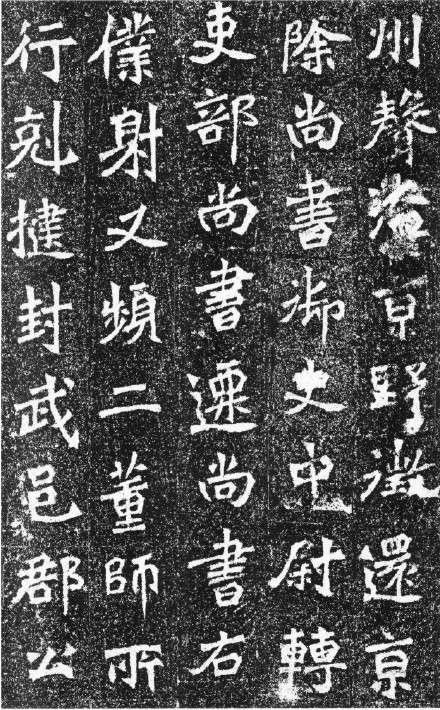 州聲溢京野徵還京
除尚書御史中尉轉
吏部尚書遷尚書右
僕射又頻二董師所
行剋揵封武邑郡公